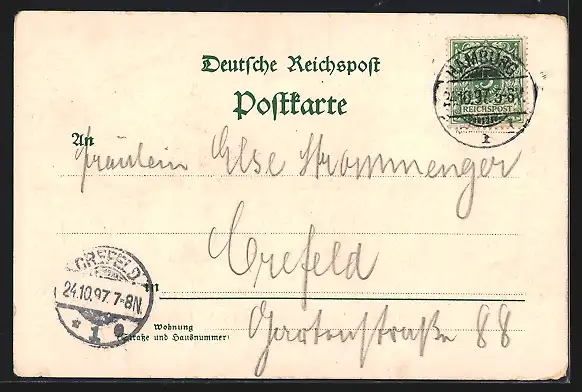 Deutsche Reichspost
Postkarte
HAMBURG
24.10.97. 5-6
1
5
REICHSPOST
An
Fräulein Else Strommenger
Crefeld
in
CREFELD
24.10.97. 7-8N.
* 1 e
Wohnung
(Straße und Hausnummer)
Gartenstraße 88